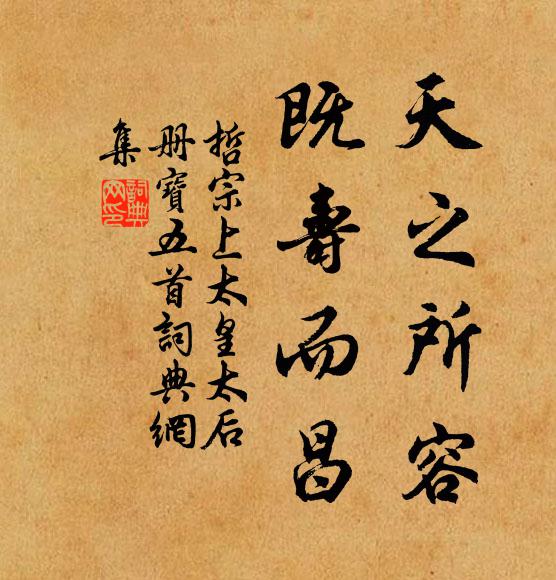 天之所容
既壽而昌
哲宗上太皇太后
册寶五首詞典網
集
詞典
网印